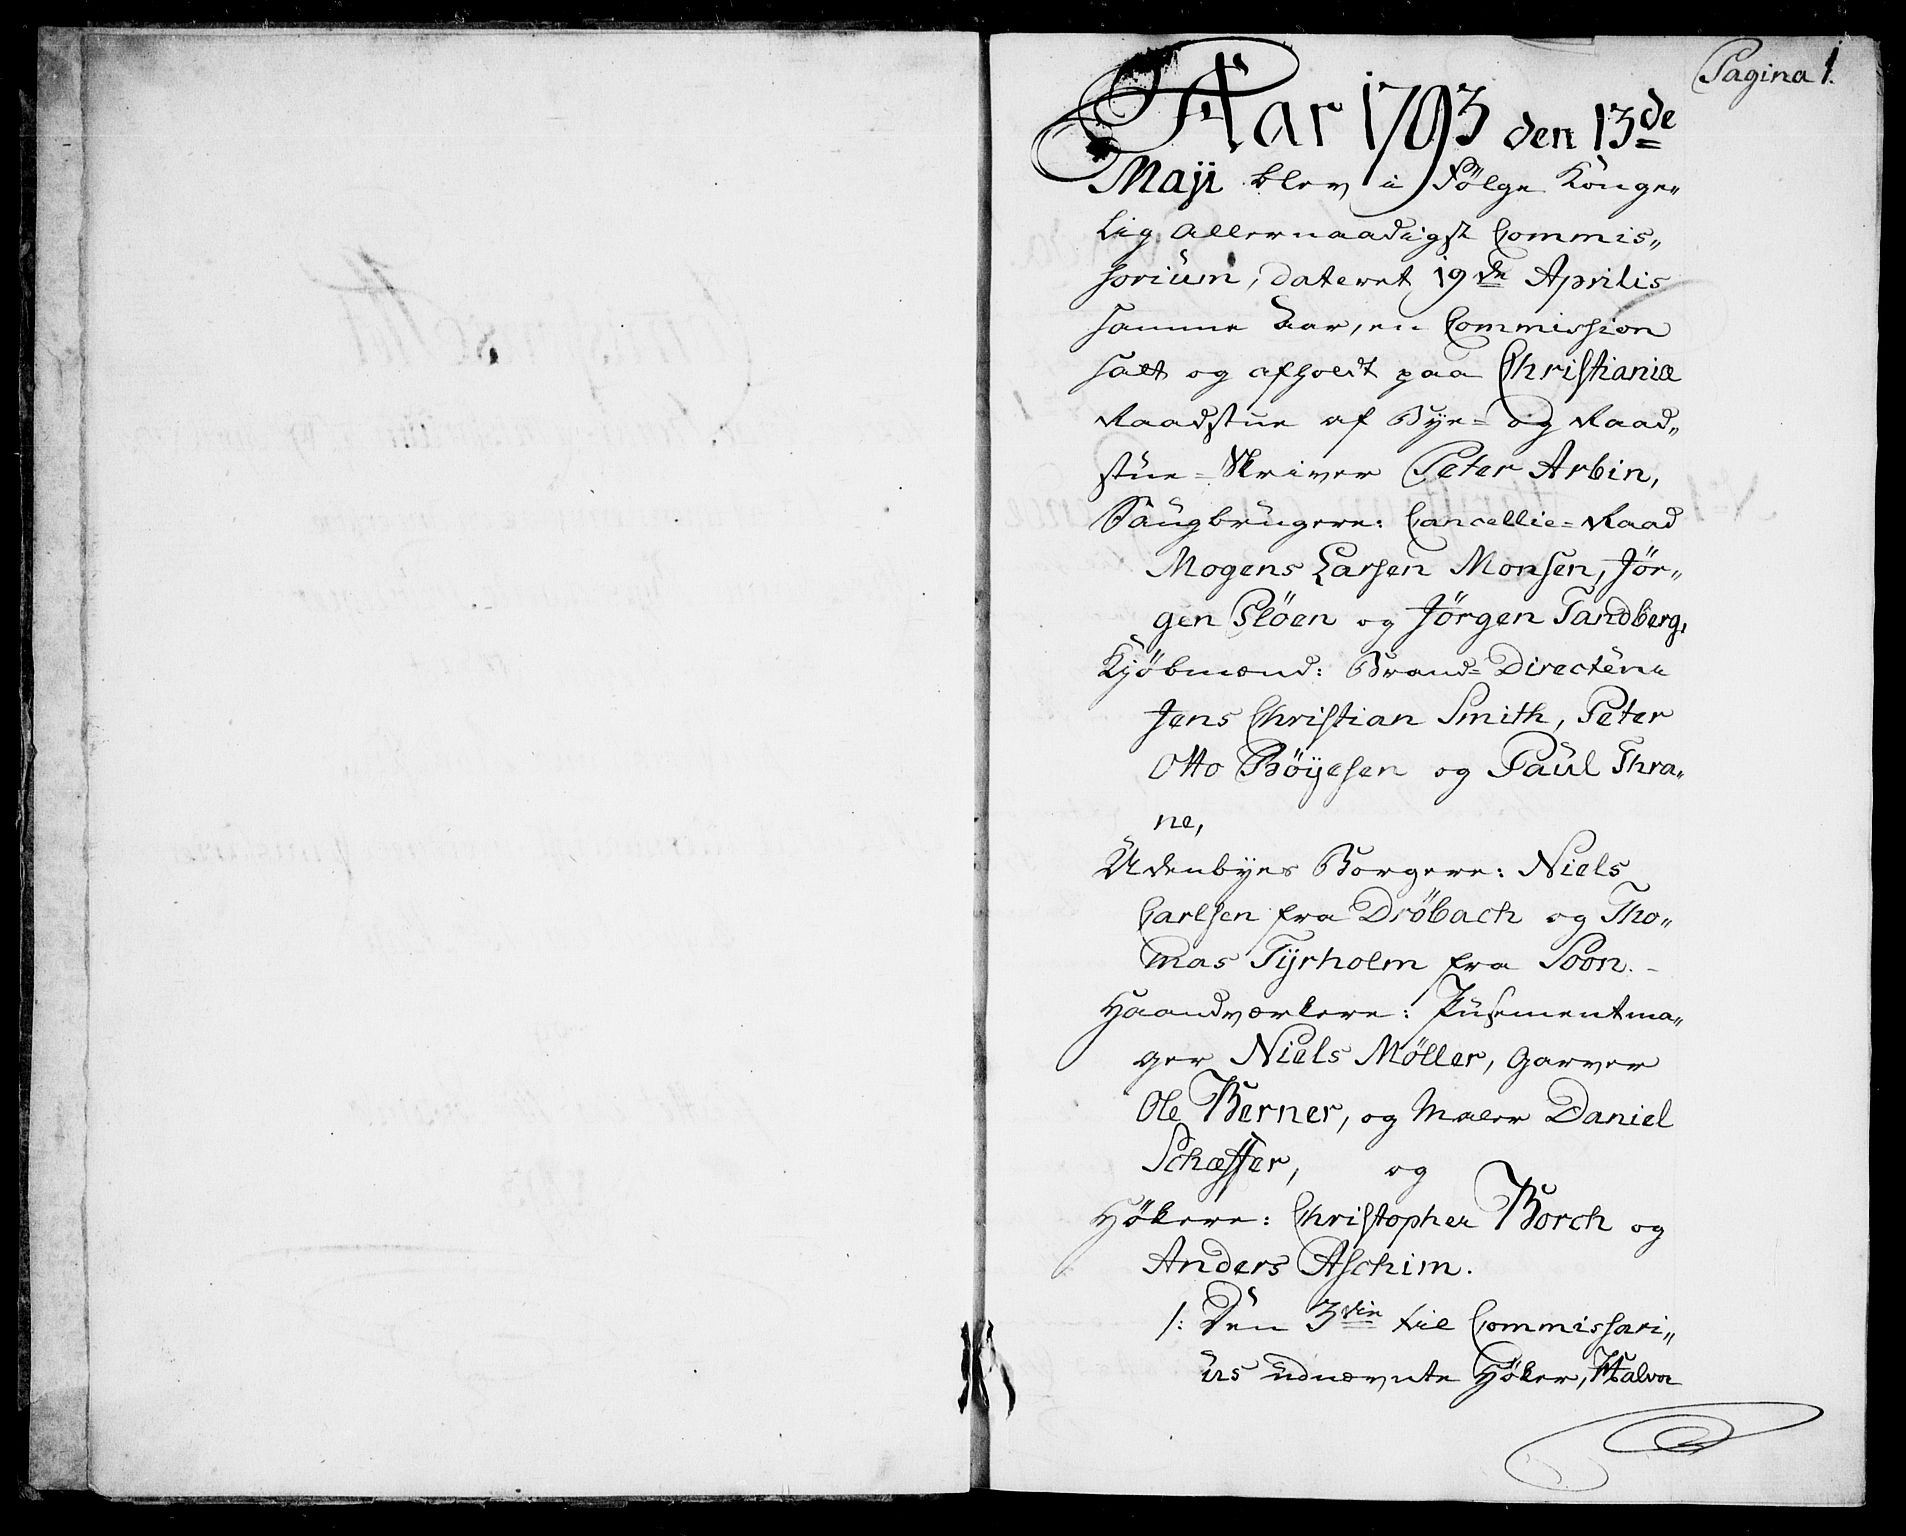 Pagina 1.
Aar 1793 den 13de
Maji blev i Følge Konge„
lig allernaadigst Commis„
sorium, dateret 19de Aprilis
samme Aar, en Commission
satt og afholdt paa Christianiæ
Raadstue af Bye= og Raad„
stue=Skriver Peter Arbin,
Saugbrugere: Cancellie=Raad
Mogens Larsen Monsen, Jør„
gen Pløen og Jørgen Tandberg,
Kjøbmænd: Brand=Directeur
Jens Christian Smith, Peter
Otto Böyesen og Paul Thra„
ne,
Udenbyes Borgere: Niels
Carlsen fra Dröbach og Tho„
mas Tyrholm fra Soon. -
Haandværkere: Pusementma„
ger Niels Møller, Garver
Ole Berner, og Maler Daniel
Schæffer, og
Høkere: Christopher Borch og
Anders Aschim.
/: Den 3die til Commissari„
us udnævnte Høker, Halvor